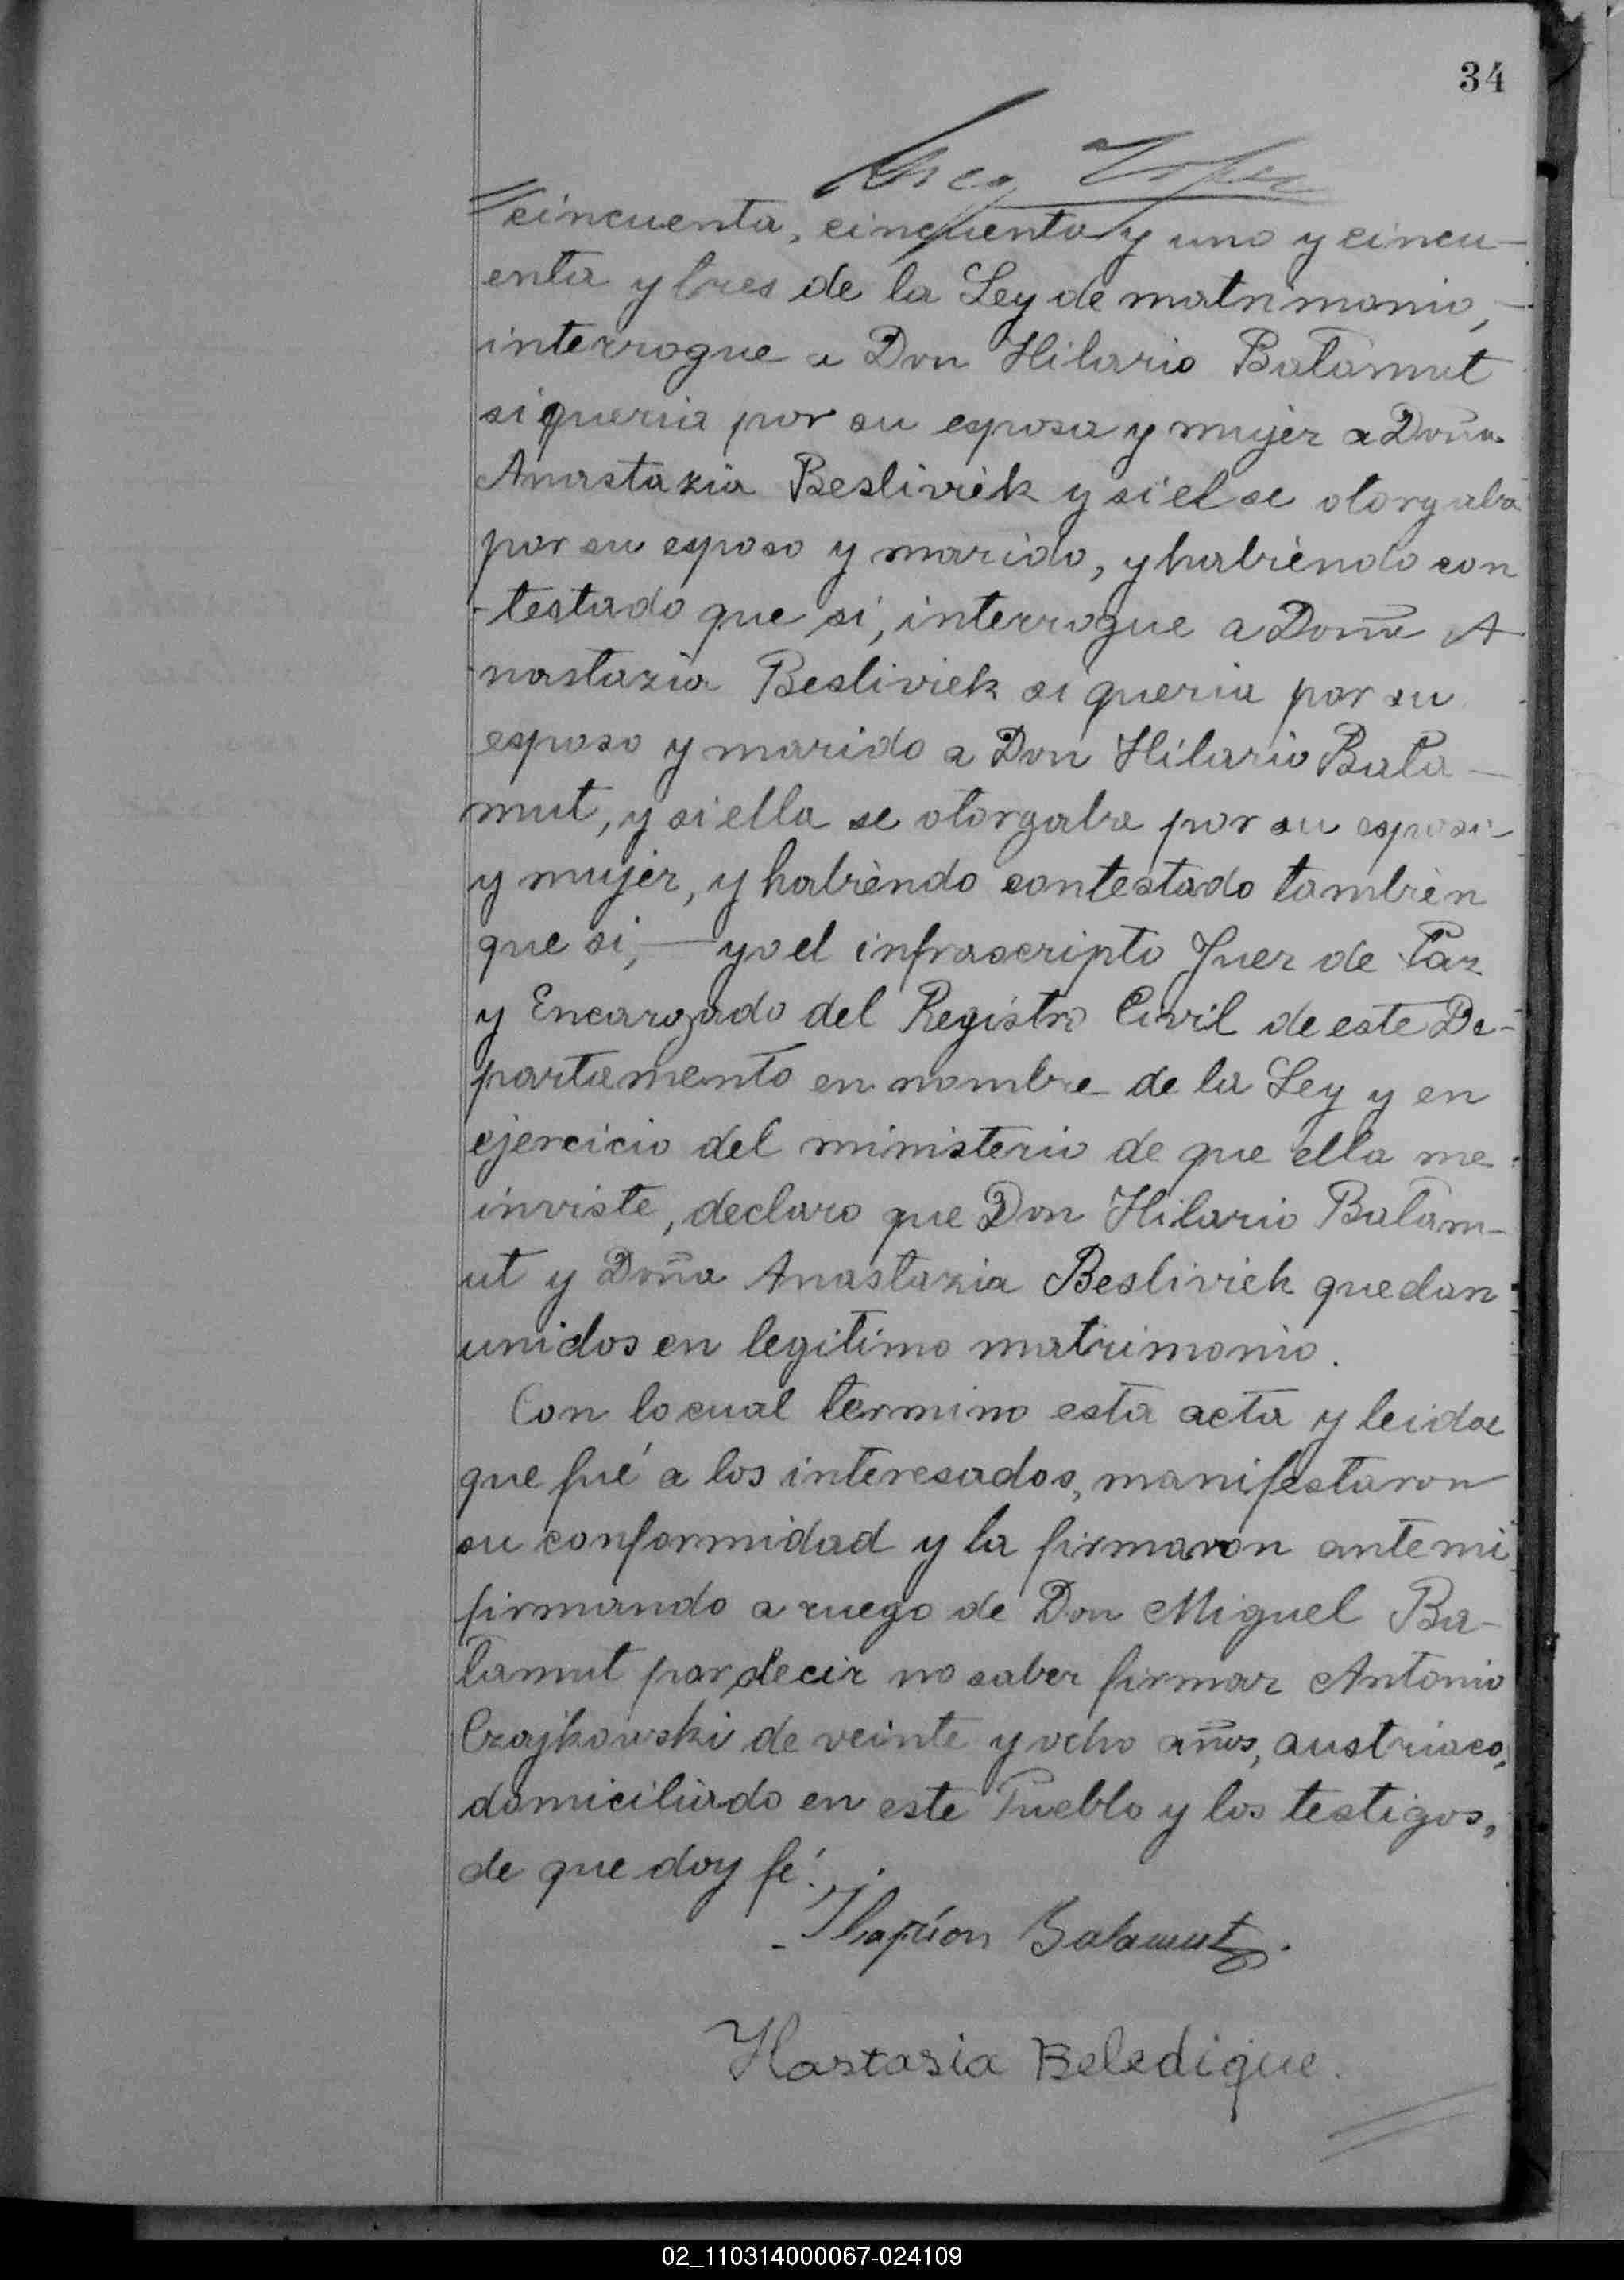 34
cincuenta, cincuenta y uno y cincu-
enta y tres de la Ley de matrimonio, -
interrogue a Don Hilario Batamut
si queria por su esposa y mujer a Doña
Anastazia Besliviek y si el se otorgaba
por su esposo y marido, y habiendo con
-testado que si, interrogue a Doña A
nastazia Besliviek si queria por su
esposo y marido a Don Hilario Bata-
mut, y si ella se otorgaba por su esposa
y mujer, y habiendo contestado tambien
que si, — yo el infrascripto Juez de Paz
y Encargado del Registro Civil de este De-
partamento en nombre de la Ley y en
ejercicio del ministerio de que ella me
inviste, declaro que Don Hilario Batam-
ut y Doña Anastazia Besliviek quedan
unidos en legitimo matrimonio.
Con lo cual termino esta acta y leida
que fué a los interesados, manifestaron
su conformidad y la firmaron ante mi
firmando a ruego de Don Miguel Ba-
tamut por decir no saber firmar Antonio
Czajkowski de veinte y ocho años, austriaco,
domiciliado en este Pueblo y los testigos,
de que doy fé.
Balamut
Hastasia Beledique.
02_110314000067-024109